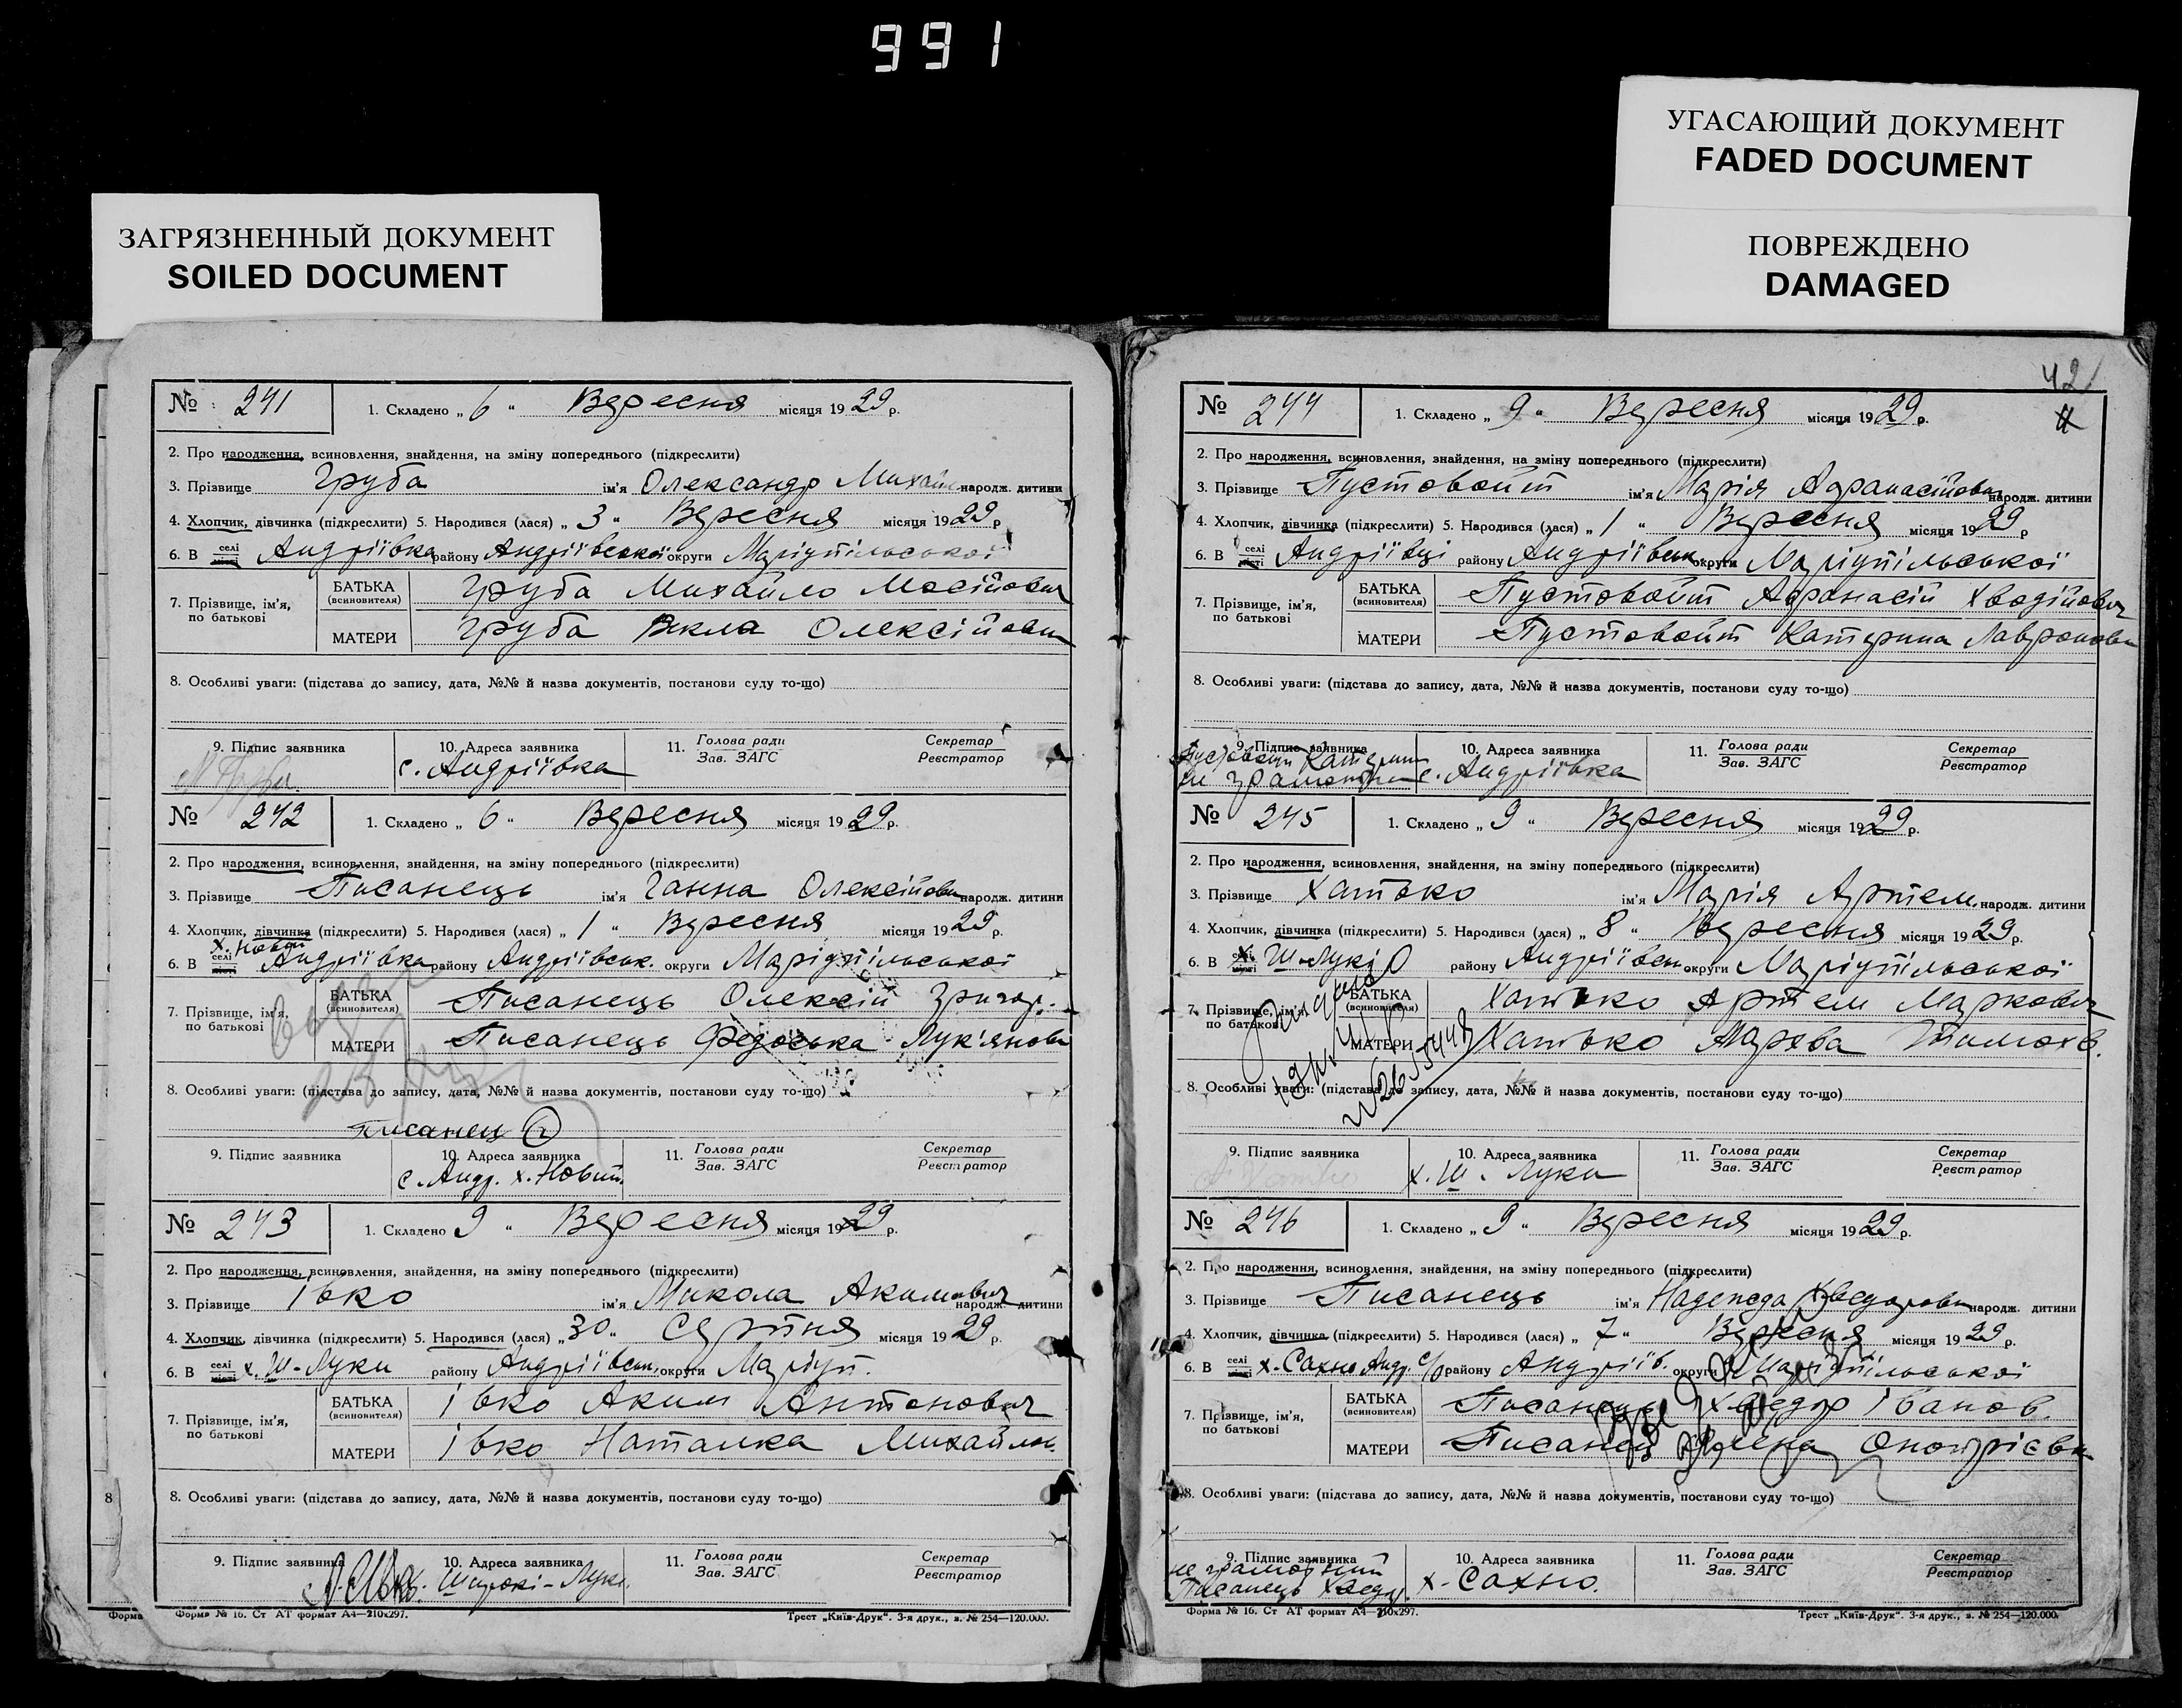 991
УГАСАЮЩИЙ ДОКУМЕНТ
FADED DOCUMENT
ПОВРЕЖДЕНО
DAMAGED
ЗАГРЯЗНЕННЫЙ ДОКУМЕНТ
SOILED DOCUMENT
№ 241 1. Складено „ 6 “ Вересня місяця 19 29 р.
2. Про народження, всиновлення, знайдення, на зміну попереднього (підкреслити)
3. Прізвище Груба ім'я Олександр Михайл народж. дитини
4. Хлопчик, дівчинка (підкреслити) 5. Народився (лася) „ 3 “ Вересня місяця 19 29 р
6. В селі місті Андріївка району Андріївської округи Маріупільської
7. Прізвище, ім'я, по батькові
БАТЬКА (всиновителя) Груба Михайло Мосійович
МАТЕРИ Груба Векла Олексійовн
8. Особливі уваги: (підстава до запису, дата, №№ й назва документів, постанови суду то-що)
9. Підпис заявника 10. Адреса заявника 11. Голова ради Зав. ЗАГС Секретар Реєстратор
с. Андріївка
№ 242 1. Складено „ 6 “ Вересня місяця 19 29 р.
2. Про народження, всиновлення, знайдення, на зміну попереднього (підкреслити)
3. Прізвище Писанець ім'я Ганна Олексійовн народж. дитини
4. Хлопчик, дівчинка (підкреслити) 5. Народився (лася) „ 1 “ Вересня місяця 19 29 р.
х. Новий
6. В селі місті Андріївка району Андріївськ. округи Маріупільської
7. Прізвище, ім'я, по батькові
БАТЬКА (всиновителя) Писанець Олексій Григор.
МАТЕРИ Писанець Федоська Лук'яновн
8. Особливі уваги: (підстава до запису, дата, №№ й назва документів, постанови суду то-що)
Писанец
9. Підпис заявника 10. Адреса заявника 11. Голова ради Зав. ЗАГС Секретар Реєстратор
с. Андр. х. Новий.
№ 243 1. Складено 9 “ Вересня місяця 19 29 р.
2. Про народження, всиновлення, знайдення, на зміну попереднього (підкреслити)
3. Прізвище Івко ім'я Микола Акимович народж. дитини
4. Хлопчик, дівчинка (підкреслити) 5. Народився (лася) „ 30 “ Серпня місяця 19 29 р.
6. В селі місті х. Ш-Луки району Андріївськ. округи Маріуп.
7. Прізвище, ім'я, по батькові
БАТЬКА (всиновителя) Івко Аким Антонович
МАТЕРИ Івко Наталка Михайлов.
8. Особливі уваги: (підстава до запису, дата, №№ й назва документів, постанови суду то-що)
9. Підпис заявника 10. Адреса заявника 11. Голова ради Зав. ЗАГС Секретар Реєстратор
Широкі-Луки.
Форма № 16. Ст АТ формат А4—210х297. Трест „Київ-Друк“. 3-я друк., з. № 254—120.000.
42
№ 244 1. Складено „ 9 “ Вересня місяця 19 29 р.
2. Про народження, всиновлення, знайдення, на зміну попереднього (підкреслити)
3. Прізвище Пустовойт ім'я Марія Афанасійовн народж. дитини
4. Хлопчик, дівчинка (підкреслити) 5. Народився (лася) „ 1 “ Вересня місяця 19 29 р
6. В селі місті Андріївці району Андріївськ округи Маріупільської
7. Прізвище, ім'я, по батькові
БАТЬКА (всиновителя) Пустовойт Афанасій Хводійович
МАТЕРИ Пустовойт Катерина Лавроновн
8. Особливі уваги: (підстава до запису, дата, №№ й назва документів, постанови суду то-що)
9. Підпис заявника 10. Адреса заявника 11. Голова ради Зав. ЗАГС Секретар Реєстратор
Пустовойт Катерин
не грамотна с. Андріївка
№ 245 1. Складено „ 9 “ Вересня місяця 19 29 р.
2. Про народження, всиновлення, знайдення, на зміну попереднього (підкреслити)
3. Прізвище Хатько ім'я Марія Артем. народж. дитини
4. Хлопчик, дівчинка (підкреслити) 5. Народився (лася) „ 8 “ Вересня місяця 19 29 р.
6. В селі місті Ш-Лукі району Андріївськ округи Маріупільської
7. Прізвище, ім'я, по батькові
БАТЬКА (всиновителя) Хатько Артем Маркович
МАТЕРИ Хатько Мархва Тимохв.
8. Особливі уваги: (підстава до запису, дата, №№ й назва документів, постанови суду то-що)
9. Підпис заявника 10. Адреса заявника 11. Голова ради Зав. ЗАГС Секретар Реєстратор
х. Ш. Луки
№ 246 1. Складено „ 9 “ Вересня місяця 19 29 р.
2. Про народження, всиновлення, знайдення, на зміну попереднього (підкреслити)
3. Прізвище Писанець ім'я Надежда Хведоровн народж. дитини
4. Хлопчик, дівчинка (підкреслити) 5. Народився (лася) „ 7 “ Вересня місяця 19 29 р.
6. В селі місті х. Сахно Андр. с/р району Андріїв. округи Маріупільської
7. Прізвище, ім'я, по батькові
БАТЬКА (всиновителя) Писанець Хведор Іванов.
МАТЕРИ Писанец Онопрієвн
8. Особливі уваги: (підстава до запису, дата, №№ й назва документів, постанови суду то-що)
9. Підпис заявника 10. Адреса заявника 11. Голова ради Зав. ЗАГС Секретар Реєстратор
не грамотний
Писанець Хведор х-Сахно.
Форма № 16. Ст АТ формат А4—210х297. Трест „Київ-Друк“. 3-я друк., з. № 254—120.000.